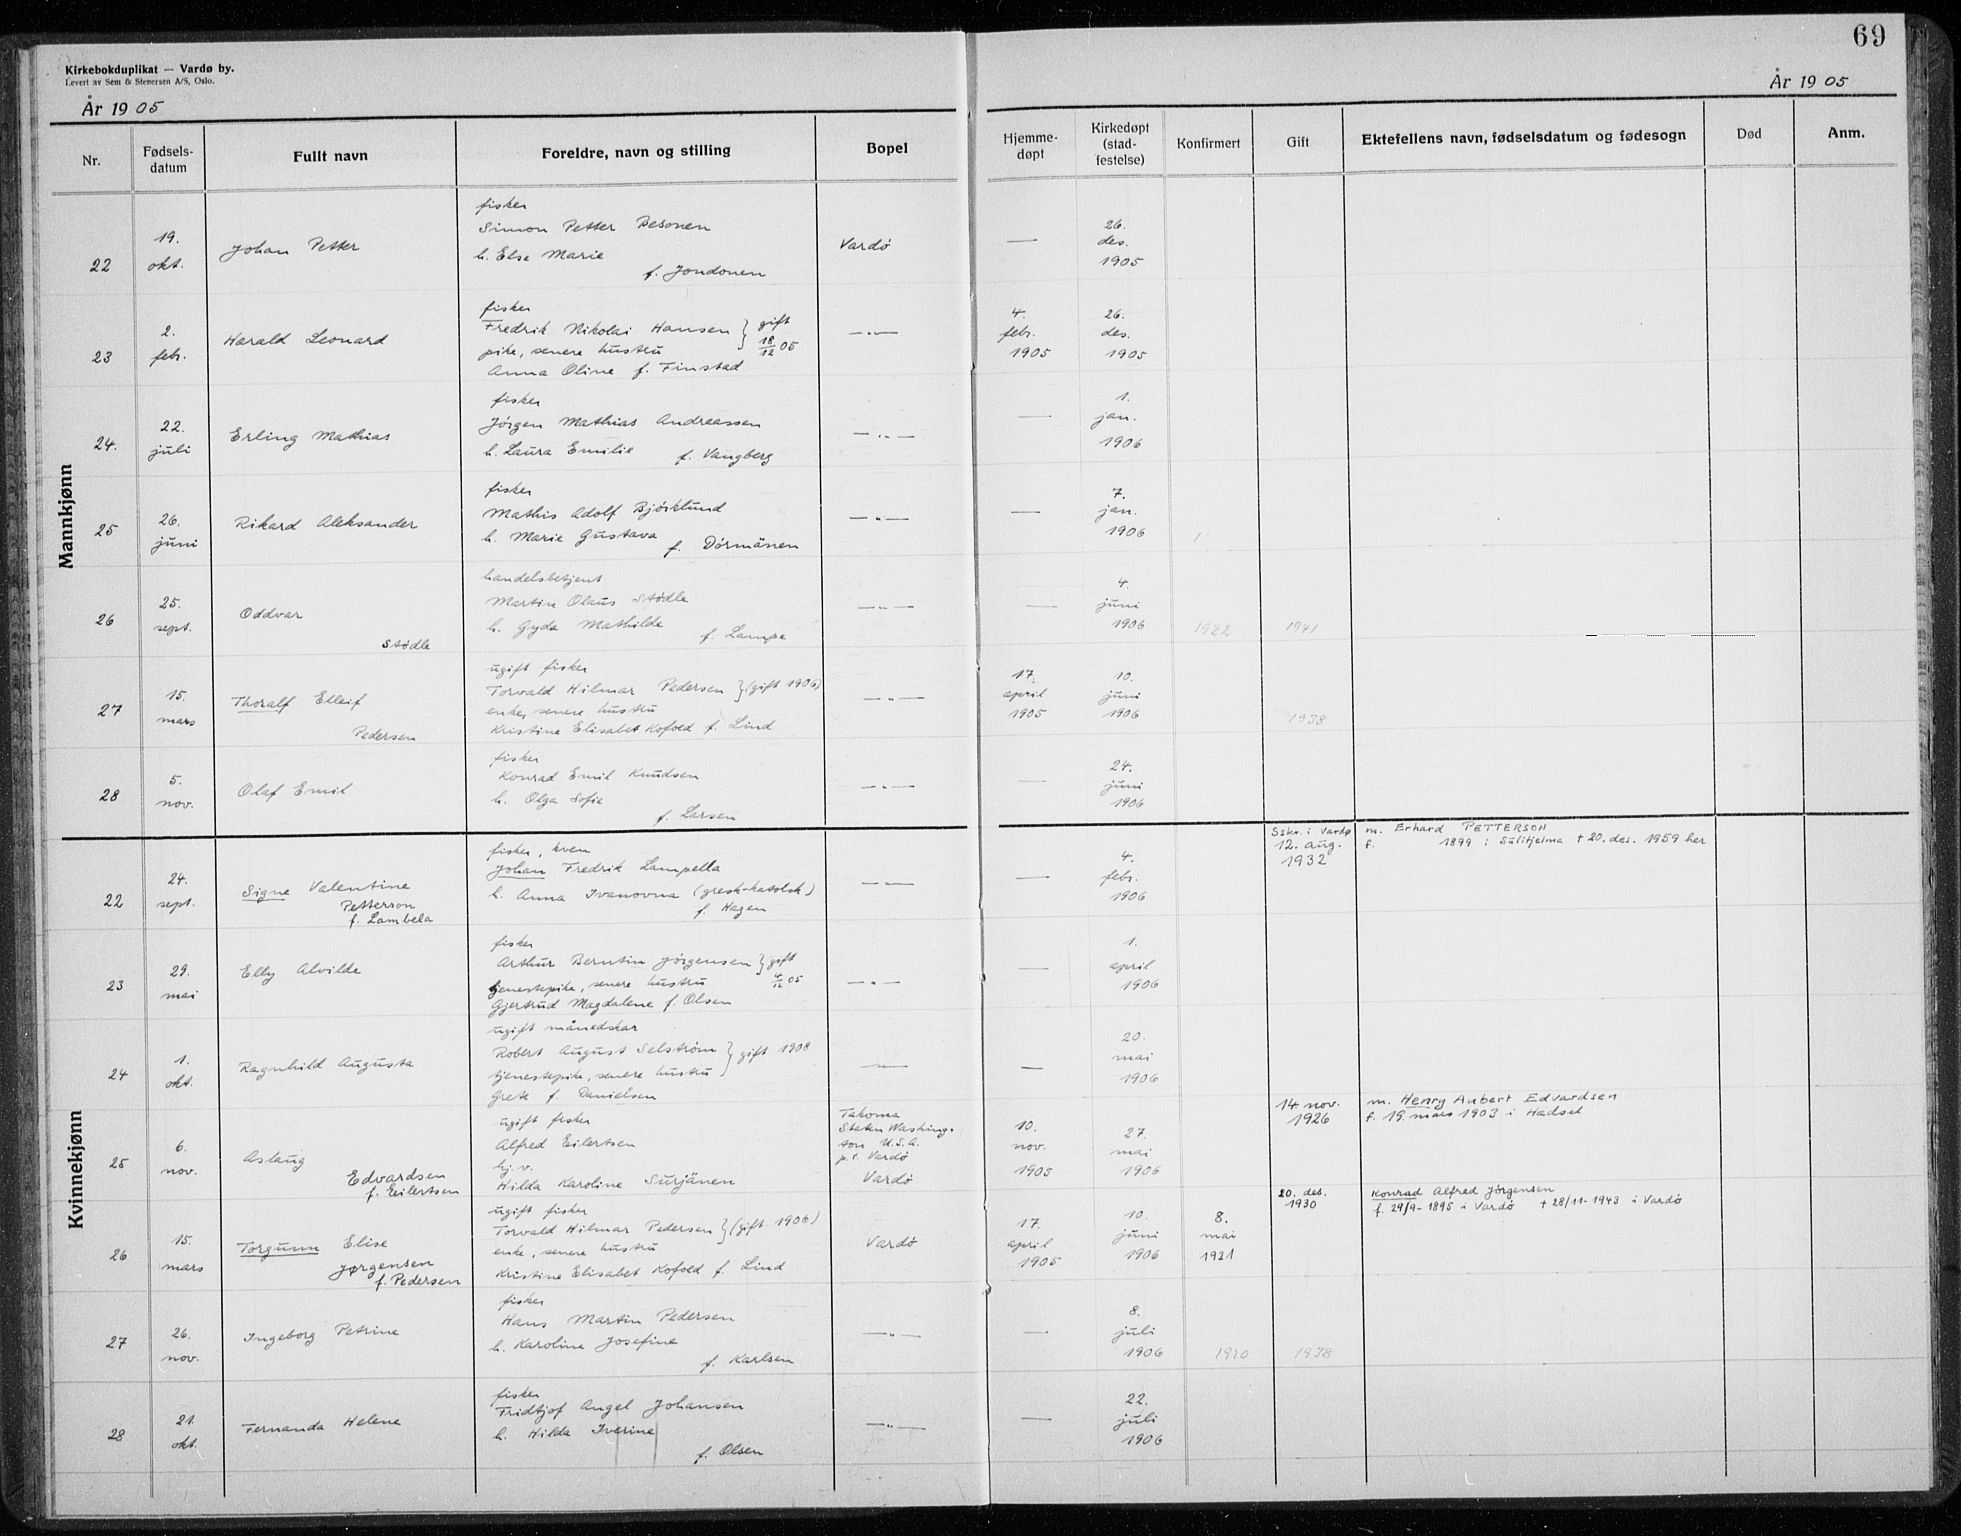 69
Kirkebokduplikat — Vardø by.
Levert av Sem & Stenersen A/S, Oslo.
År 1905
År 1905
Nr.
Fødsels-
datum
Fullt navn
Foreldre, navn og stilling
Bopel
Hjemme-
døpt
Kirkedøpt
(stad-
festelse)
Konfirmert
Gift
Ektefellens navn, fødselsdatum og fødesogn
Død
Anm.
Mannkjønn
22
19.
okt.
Johan Petter
fisker
Simon Petter Besonen
h. Else Marie
f. Jondonen
Vardø
—
26.
des.
1905
23
2.
feb.
Harald Leonard
fisker
Fredrik Nikolai Hansen } gift
pike, senere hustru 18/12 05
Anna Oline f. Finstad
— " —
4.
feb.
1905
26.
des.
1905
24.
22.
juli
Erling Mathias
fisker
Jörgen Mathias Andreassen
h. Laura Emilie f. Vangberg
— " —
—
1.
jan.
1906
25
26.
juni
Rikard Aleksander
fisker
Mathis Adolf Bjørklund
h. Marie Gustava
f. Dörmänen
— " —
—
7.
jan.
1906
26
25.
sept.
Oddvar
Stødle
handelsbetjent
Martin Olaus Stødle
h. Gyda Mathilde
f. Lampe
— " —
—
4.
juni
1906
1922
1941
27
15.
mars
Thoralf Elleif
Pedersen
ugift fisker
Torvald Hilmar Pedersen } (gift 1906)
enke, senere hustru
Kristine Elisabet Kofoed f. Lind
— " —
17.
april
1905
10.
juni
1906
1938
28
5.
nov.
Olaf Emil
fisker
Konrad Emil Knudsen
h. Olga Sofie
f. Larsen
— " —
—
24.
juni
1906
Kvinnekjønn
22
24.
sept.
Signe Valentine
Petterson
f. Lambela
fisker, kven
Johan Fredrik Lampella
h. Anna Ivanovna (gresk-katolsk)
f. Hagen
— " —
—
4.
feb.
1906
Sskr. i Vardø
12. aug.
1932
m. Erhard PETTERSON
f. 1899 i Sulitjelma † 20. des. 1959 her
23
29.
mai
Elly Alvilde
fisker
Arthur Berntin Jörgensen } gift
tjenestepike, senere hustru 4/12 05
Gjertrud Magdalene f. Olsen
— " —
—
1.
april
1906
24
1.
okt.
Ragnhild Augusta
ugift månedskar
Robert August Selström } gift 1908
tjenestepike, senere hustru
Grete f. Danielsen
— " —
—
20.
mai
1906
25
6.
nov.
Aslaug
Edvardsen
f. Eilertsen
ugift fisker
Alfred Eilertsen
hj. v.
Hilda Karoline Surjänen
Takoma
Staten Washing-
ton U.S.A.
p.t. Vardø
Vardø
10.
nov.
1905
27.
mai
1906
14. nov.
1926
m. Henry Aubert Edvardsen
f. 19. mars 1903 i Hadsel
26
15.
mars
Torgunn Elise
Jørgensen
f. Pedersen
ugift fisker
Torvald Hilmar Pedersen } (gift 1906)
enke, senere hustru
Kristine Elisabet Kofoed f. Lind
Vardø
17.
april
1905
10.
juni
1906
8.
mai
1921
20. des.
1930
Konrad Alfred Jørgensen
f. 29/9-1895 i Vardø † 28/11-1943 i Vardø
27
26.
nov.
Ingeborg Petrine
fisker
Hans Martin Pedersen
h. Karoline Josefine
f. Karlsen
— " —
—
8.
juli
1906
1920
1938
28
21.
okt.
Fernanda Helene
fisker
Fridtjof Angel Johansen
h. Hilda Iverine
f. Olsen
— " —
—
22.
juli
1906